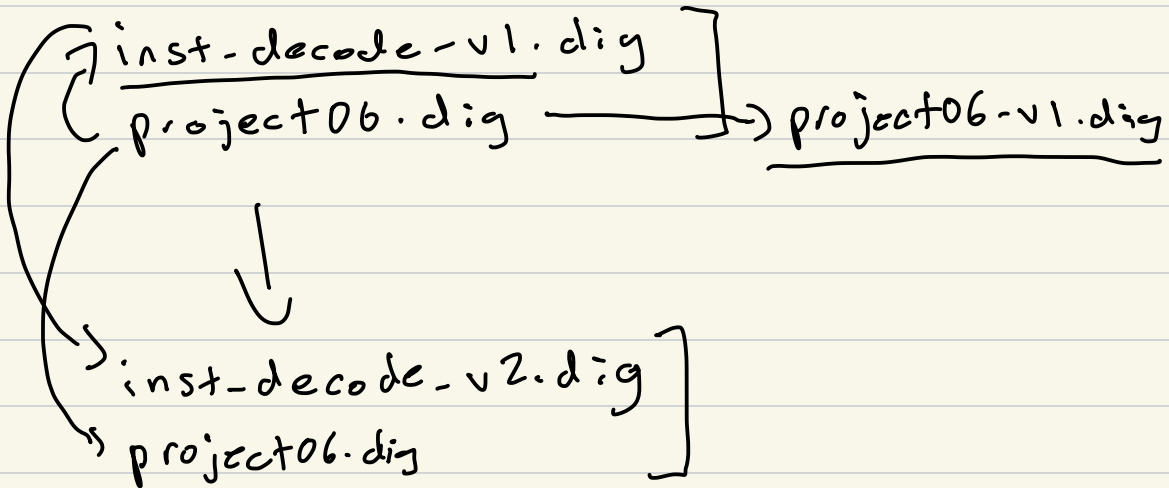 inst-decode-v1.dig
project06.dig
project06-v1.dig
inst-decode-v2.dig
project06.dig